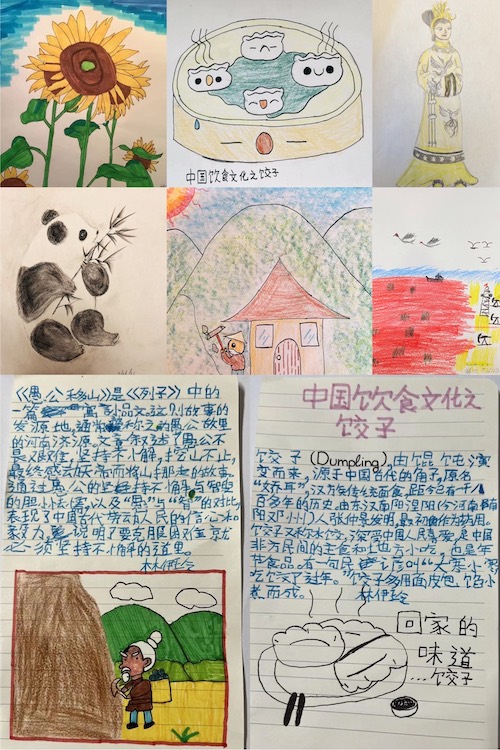 中国饮食文化之饺子
《愚公移山》是《列子》中的
一篇寓言小品文,这则故事的
发源地,通常称之为愚公故里
的河南济源。文章叙述了愚公不
畏艰难,坚持不懈,挖山不止,
最终感动天帝而将山挪走的故事。
通过愚公的坚持不懈与智叟
的胆小怯懦,以及“愚”与“智”的对比,
表现了中国古代劳动人民的信心和
毅力,说明了要克服困难就
必须坚持不懈的道理。
林伊玲
中国饮食文化之
饺子
饺子(Dumpling),由馄饨演
变而来,源于中国古代的角子,原名
“娇耳”,汉族传统面食,距今已有一千八
百多年的历史。由东汉南阳涅阳(今河南南
阳邓州)人张仲景发明,最初作为药用。
饺子又称水饺,深受中国人民喜爱,是中国
北方民间的主食和地方小吃,也是年
节食品。有一句民谣叫“大寒小寒
吃饺子过年。”饺子多用面皮包馅水
煮而成。 林伊玲
回家的
味道
...饺子